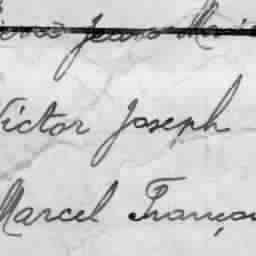 Jean Marie
Victor Joseph
Marcel François